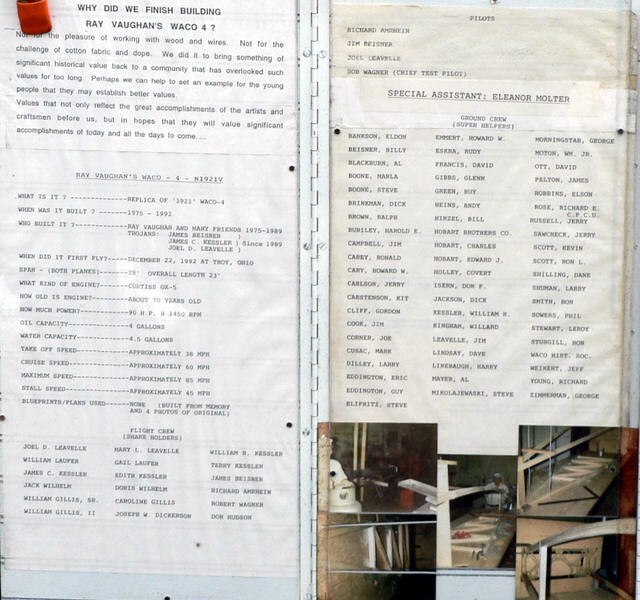 WHY DID WE FINISH BUILDING
RAY VAUGHAN'S WACO 4 ?
Not for the pleasure of working with wood and wires. Not for the
challenge of cotton fabric and dope. We did it to bring something of
significant historical value back to a community that has overlooked such
values for too long. Perhaps we can help to set an example for the young
people that they may establish better values.
Values that not only reflect the great accomplishments of the artists and
craftsmen before us, but in hopes that they will value significant
accomplishments of today and all the days to come....
RAY VAUGHAN'S WACO - 4 - N1921V
WHAT IS IT ? --------------REPLICA OF '1921' WACO-4
WHEN WAS IT BUILT ? --------1975 - 1992
WHO BUILT IT ?-------------RAY VAUGHAN AND MANY FRIENDS 1975-1989
TROJANS: JAMES BEISNER )
JAMES C. KESSLER ) Since 1989
JOEL D. LEAVELLE )
WHEN DID IT FIRST FLY?-----DECEMBER 22, 1992 AT TROY, OHIO
SPAN - (BOTH PLANES)-------28' OVERALL LENGTH 23'
WHAT KIND OF ENGINE?-------CURTISS OX-5
HOW OLD IS ENGINE?---------ABOUT 70 YEARS OLD
HOW MUCH POWER?------------90 H.P. @ 1450 RPM
OIL CAPACITY---------------4 GALLONS
WATER CAPACITY-------------4.5 GALLONS
TAKE OFF SPEED-------------APPROXIMATELY 38 MPH
CRUISE SPEED---------------APPROXIMATELY 60 MPH
MAXIMUM SPEED--------------APPROXIMATELY 85 MPH
STALL SPEED----------------APPROXIMATELY 45 MPH
BLUEPRINTS/PLANS USED------NONE (BUILT FROM MEMORY
AND 4 PHOTOS OF ORIGINAL)
FLIGHT CREW
(SHARE HOLDERS)
JOEL D. LEAVELLE MARY L. LEAVELLE WILLIAM R. KESSLER
WILLIAM LAUFER GAIL LAUFER TERRY KESSLER
JAMES C. KESSLER EDITH KESSLER JAMES BEISNER
JACK WILHELM DORIS WILHELM RICHARD AMRHEIN
WILLIAM GILLIS, SR. CAROLINE GILLIS ROBERT WAGNER
WILLIAM GILLIS, II JOSEPH W. DICKERSON DON HUDSON
PILOTS
RICHARD AMRHEIN
JIM BEISNER
JOEL LEAVELLE
BOB WAGNER (CHIEF TEST PILOT)
SPECIAL ASSISTANT: ELEANOR MOLTER
GROUND CREW
(SUPER HELPERS)
BANKSON, ELDON EMMERT, HOWARD W. MORNINGSTAR, GEORGE
BEISNER, BILLY ESKRA, RUDY MOTON, WM. JR.
BLACKBURN, AL FRANCIS, DAVID OTT, DAVID
BOONE, MARLA GIBBS, GLENN PELTON, JAMES
BOONE, STEVE GREEN, BUY ROBBINS, ELSON
BRINKMAN, DICK HEINS, ANDY ROSE, RICHARD E.
C.P.C.U.
BROWN, RALPH HIRZEL, BILL RUSSELL, JERRY
BURILEY, HAROLD E. HOBART BROTHERS CO. SAWCHECK, JERRY
CAMPBELL, JIM HOBART, CHARLES SCOTT, KEVIN
CAREY, RONALD HOBART, EDWARD J. SCOTT, RON L.
CARY, HOWARD W. HOLLEY, COVERT SHILLING, DANE
CARLSON, JERRY ISERN, DON F. SHUMAN, LARRY
CARSTENSON, KIT JACKSON, DICK SMITH, RON
CLIFF, GORDON KESSLER, WILLIAM R. SOWERS, PHIL
COOK, JIM KINGHAM, WILLARD STEWART, LEROY
CORNER, JOE LEAVELLE, JIM STURGILL, RON
CUSAC, MARK LINDSAY, DAVE WACO HIST. SOC.
DILLEY, LARRY LINEBAUGH, HARRY WEIKERT, JEFF
EDDINGTON, ERIC MAYER, AL YOUNG, RICHARD
EDDINGTON, GUY MIKOLAJEWSKI, STEVE ZIMMERMAN, GEORGE
ELIFRITZ, STEVE